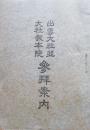 出雲大社並
大社教本院
参拜案内